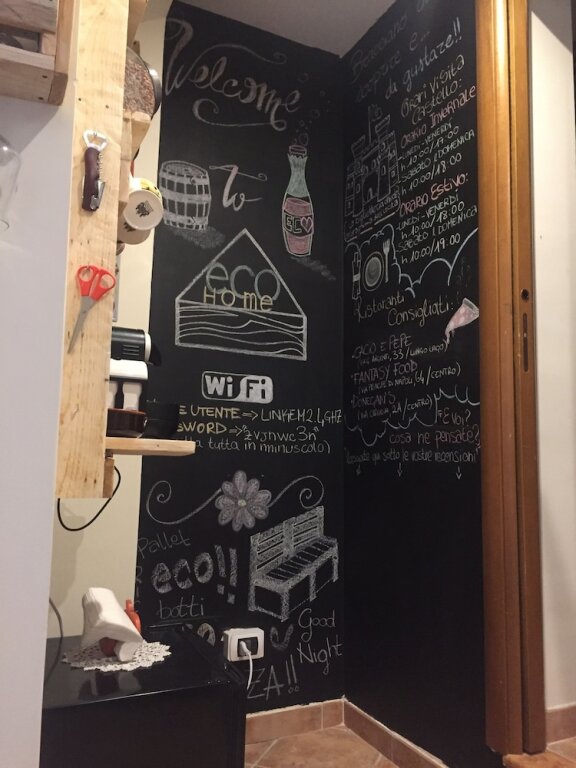 Welcome
To
ECO
eco
Home
Wi Fi
E UTENTE => LINKEM2.4GHZ
SWORD => "zvjnwc3n"
tutta in minuscolo)
Pallet
eco!!
botti
Good
Night
ZA!!
scoprire e...
da gustare!!
Orari visita
Castello:
Orario Invernale
-LUNEDI-VENERDI
h 10.00/17.30
SABATO/DOMENICA
h 10.00/18.00
Orario Estivo:
-LUNEDI-VENERDI
h 10.00/18.00
SABATO/DOMENICA
h 10.00/19.00
Ristoranti
Consigliati:
-CACIO E PEPE
33/LUNGO LAGO)
-FANTASY FOOD
64/CENTRO)
-DONEGAN'S
2A/CENTRO)
E VOI?
cosa ne pensate?
qui sotto le vostre recensioni!